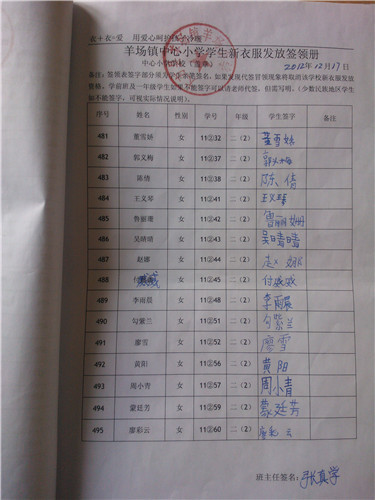 麦+衣=爱 用爱心呵护
羊场镇中心小学学生新衣服发放签领册
中心小学学校 2012年12月17日
备注:签领表签字部分须为学生亲笔签名,如果发现代签冒领现象将取消该学校新衣服发放
资格,学前班及一年级学生如果不能签字可以请老师代签,但需写明。(少数民族地区学生
如不能签字,可视实际情况说明)。
序号 姓名 性别 学号 年级 学生签字 备注
481 董雪娇 女 11②32 二(2) 董雪娇
482 郭义梅 女 11②37 二(2) 郭义梅
483 陈倩 女 11②38 二(2) 陈倩
484 王文琴 女 11②41 二(2) 王文琴
485 鲁丽珊 女 11②42 二(2) 鲁丽珊
486 吴晴晴 女 11②43 二(2) 吴晴晴
487 赵娜 女 11②44 二(2) 赵娜
488 付 女 11②45 二(2) 付
489 李雨晨 女 11②48 二(2) 李雨晨
490 勾紫兰 女 11②51 二(2) 勾紫兰
491 廖雪 女 11②52 二(2) 廖雪
492 黄阳 女 11②56 二(2) 黄阳
493 周小青 女 11②57 二(2) 周小青
494 蒙廷芳 女 11②59 二(2) 蒙廷芳
495 廖彩云 女 11②60 二(2) 廖彩云
班主任签名: 张真学